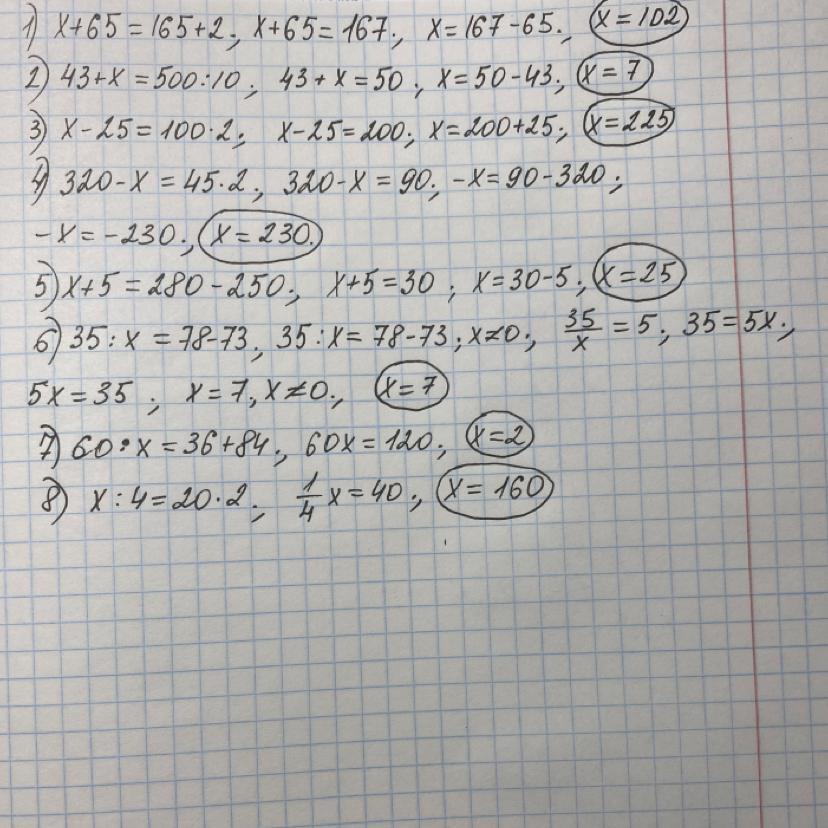 1) x+65=165+2; x+65=167; x=167-65; x=102
2) 43+x=500:10; 43+x=50; x=50-43; x=7
3) x-25=100·2; x-25=200; x=200+25; x=225
4) 320-x=45·2; 320-x=90; -x=90-320;
-x=-230; x=230.
5) x+5=280-250; x+5=30; x=30-5; x=25
6) 35:x=78-73; 35:x=78-73; x≠0; 35/x=5; 35=5x;
5x=35; x=7, x≠0; x=7
7) 60·x=36+84; 60x=120; x=2
8) x:4=20·2; 1/4x=40; x=160